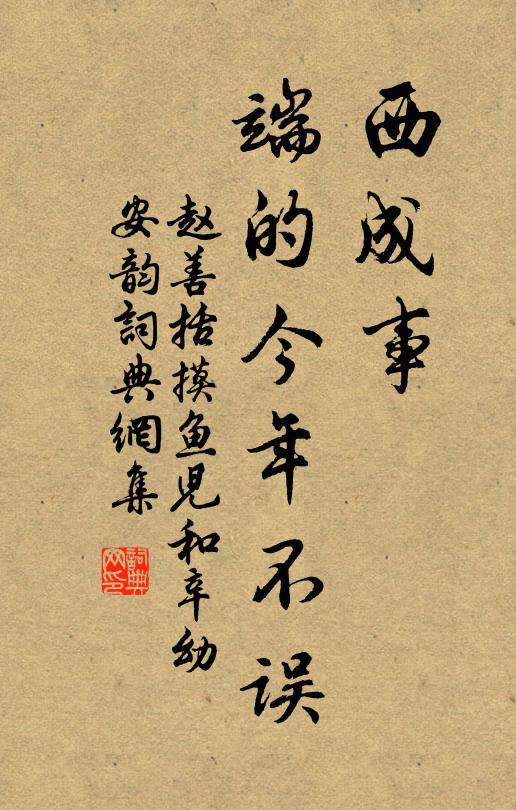 西成事
端的今年不误
赵善括摸鱼児和辛幼
安韵詞典網集
詞典
网印